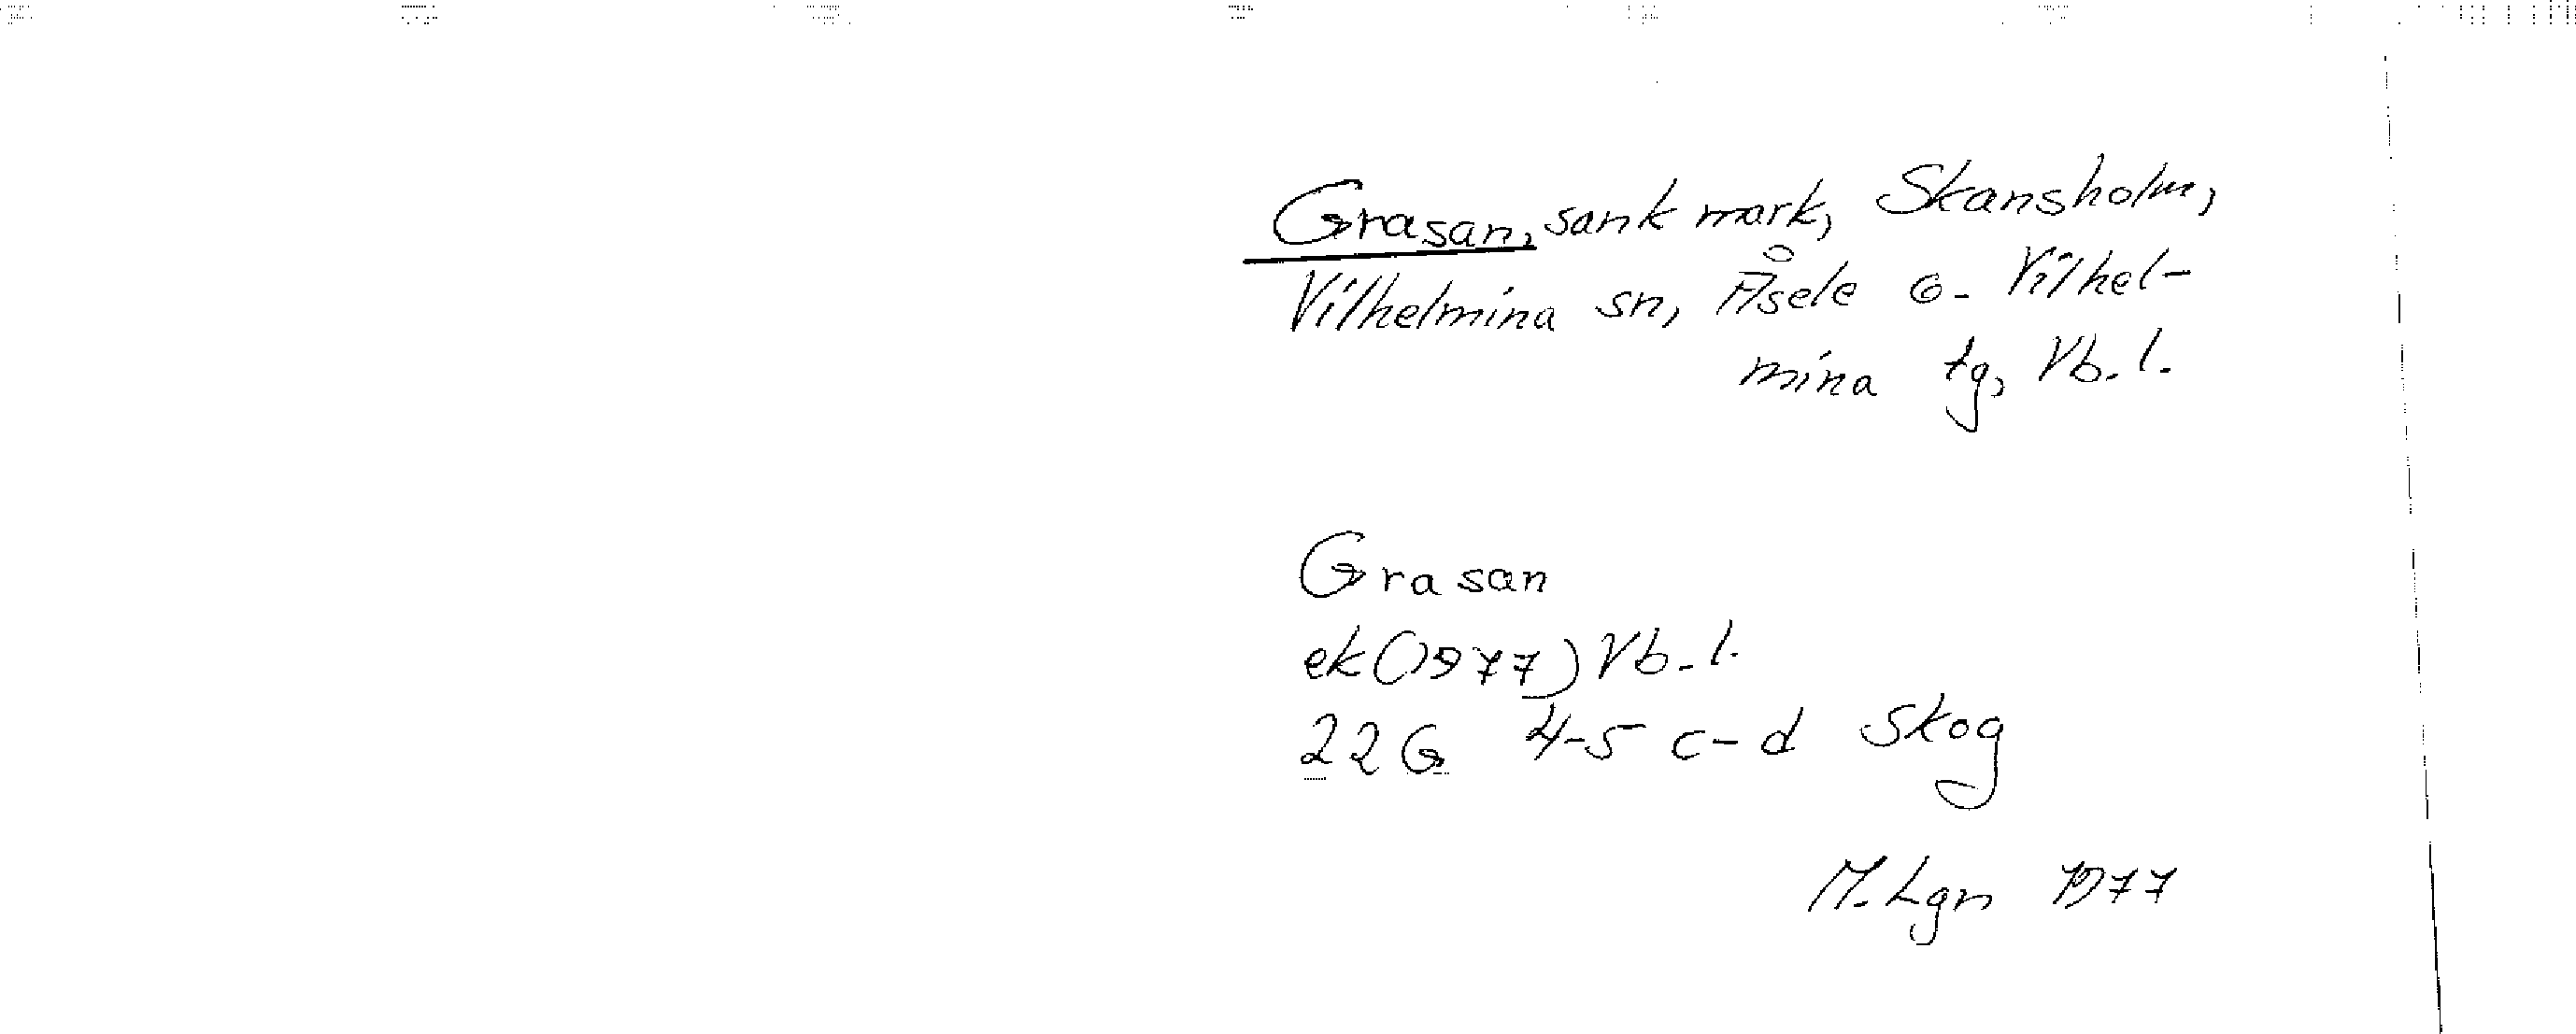 Grasan, sank mark, Skansholm,
Vilhelmina sn, Åsele o. Vilhel-
mina tg, Vb. l.
Grasan
ek (1977) Vb. l.
22 G 4-5 c-d skog
M. Lgn 1977